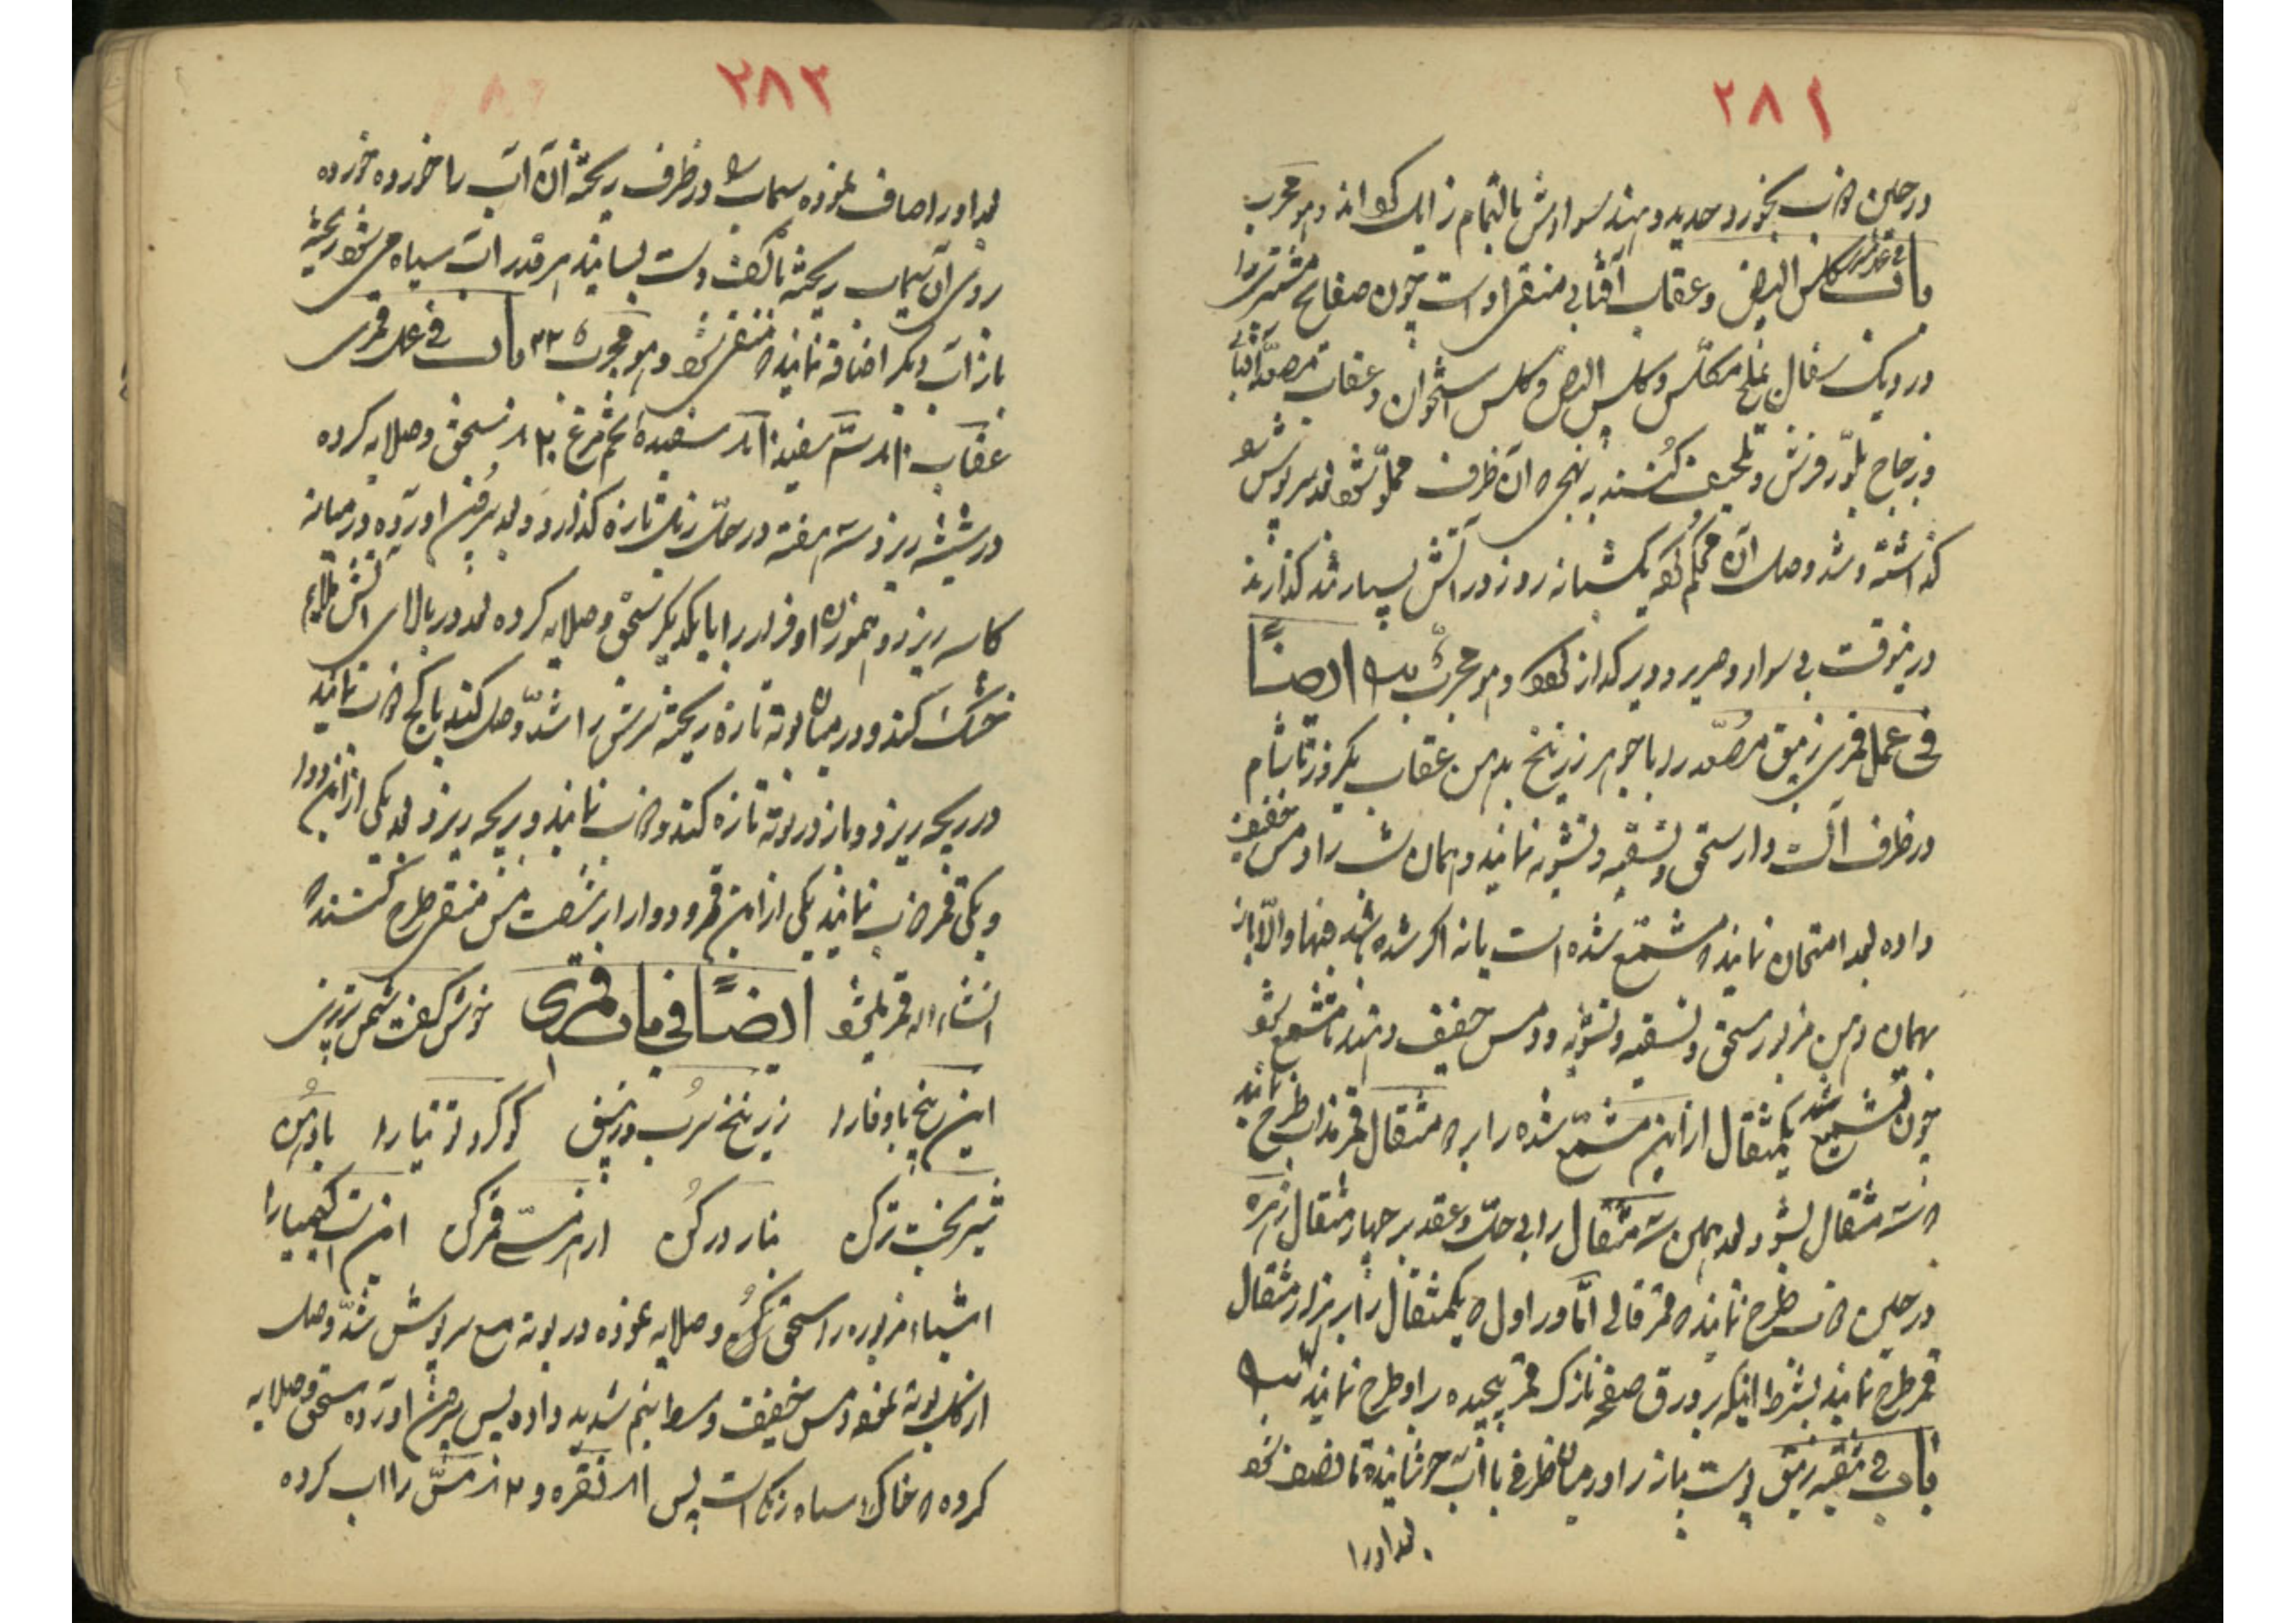 ۲۸۲
در حین ذاب بخورد و حدید دهند سوادش بالتمام زایل کند و هو مجرب
باب فی عمل مشتری کلس البیض و عقاب آفتابی منقی اوست چون صفایح مشتری را
در دیک سفال نملح مکلس و کلس البیض و کلس استخوان و عقاب مصعد آفتابی
و زجاج بلور فرش و لحیف کنند بنهجی که آن ظرف مملو شود بعد سرپوش
گذاشته و شد وصل آن محکم کرده یکشبانه روز در آتش بسیار تند گذارند
درینوقت بی سواد و صریر و دیر گداز بود و هو مجرب ایضاً
فی عمل قمری زیبق مصعد را با جوهر زرنیخ بدهن عقاب یکروز تا شام
در ظرف آلت دار سحق و تسقیه و تشویه نمایند و همان شب را دمس خفیف
داده بعد امتحان نمایند که مشمع شده است یا نه اگر شده باشد فبها و الّا باز
بهمان دهن مزبور سحق و تسقیه و تشویه و دمس خفیف دهند تا مشمع شود
چون تشمیع شد یکمثقال ازین مشمع شده را بر ده مثقال قمر مذاب طرح نمایند
که سه مثقال بشود بعد همین سه مثقال را بی حلّ و عقد بر چهار مثقال زهره
در حین ذاب طرح نمایند که قمر قالی امّا در اول که یکمثقال را بر هزار مثقال
قمر طرح نمایند بشرط اینکه بر ورق صفحه نازک قمر پیچیده را و طرح نمایند
باب فی تنقیه زیبق پوست پیاز را در میان ظرفی با آب جوشانیده تا نصف شود
بعد او را
۲۸۳
بعد او را صاف نموده سیماب را در ظرف ریخته آن آب را خورده خورده
روی آن سیماب ریخته با کف دست بسایند هر قدر آب سیاه می شود ریخته
باز آب دیگر اضافه نمایند که منقی شود و هو مجرب باب فی عمل قمری
عقاب سمّ سفید سفیده تخم مرغ سحق و صلایه کرده
در شیشه ریزد سه هفته در حلّ زبل تازه گذارد و بعد بیرون آورده در میانه
کاسه ریزد و هموزن او فرار را با یکدیگر سحق و صلایه کرده بعد در بالای آتش ملایم
خشک کند و در میان بوته تازه ریخته سرش را شدّ وصل کند با کج ذاب نمایند
در ریجه ریزد و باز در بوته تازه کند و ذاب نمایند و ریجه ریزد بعد یکی ازین دوا
و یکی قمر ذاب نمایند یکی ازین قمر و دوا را بر شصت مس منقی طرح کنند که
انشاء الله قمر بلخ شود ایضاً فی باب قمری خوش گفت شمس تبریزی
این پنج باوفا را زرنیخ سرب و زیبق گوگرد توتیا را
شیر بخت ترک نار درکن از هر مسی قمر کن این است کیمیا را
اشیاء مزبوره را سحق و صلایه نموده در بوته مع سرپوش شدّ وصل
از کل بوته نموده دمس خفیف وسط اینهم شدید داده پس بیرون آورده سحق و صلایه
کرده که خاک سیاه رنگ است پس نقره و مسّ را آب کرده